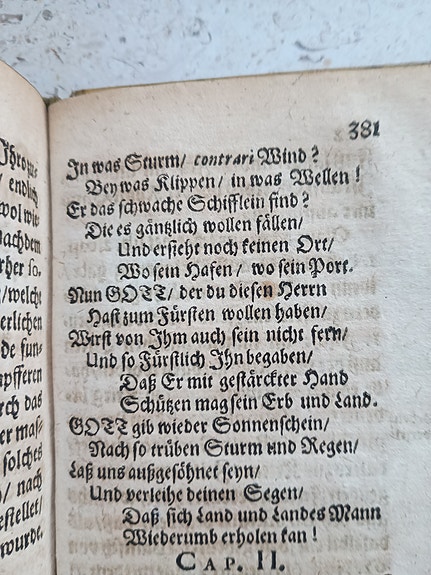 381
In was Sturm/ contrari Wind?
Bey was Klippen/ in was Wellen!
Er das schwache Schifflein find?
Die es gäntzlich wollen fällen/
Und ersieht noch keinen Ort/
Wo sein Hafen/ wo sein Port.
Nun GOTT/ der du diesen Herrn
Hast zum Fürsten wollen haben/
Wirst von Ihm auch sein nicht fern/
Und so Fürstlich Ihn begaben/
Daß Er mit gestärckter Hand
Schützen mag sein Erb und Land.
GOTT gib wieder Sonnenschein/
Nach so trüben Sturm und Regen/
Laß uns außgesöhnet seyn/
Und verleihe deinen Segen/
Daß sich Land und Landes Mann
Wiederumb erholen kan!
CAP. II.
endlich
wol wie
Nachdem
rher so,
/welche
erlichen
de fun-
mpfferen
rch das
er mas-
solches
/ nach
estellet/
wurde.